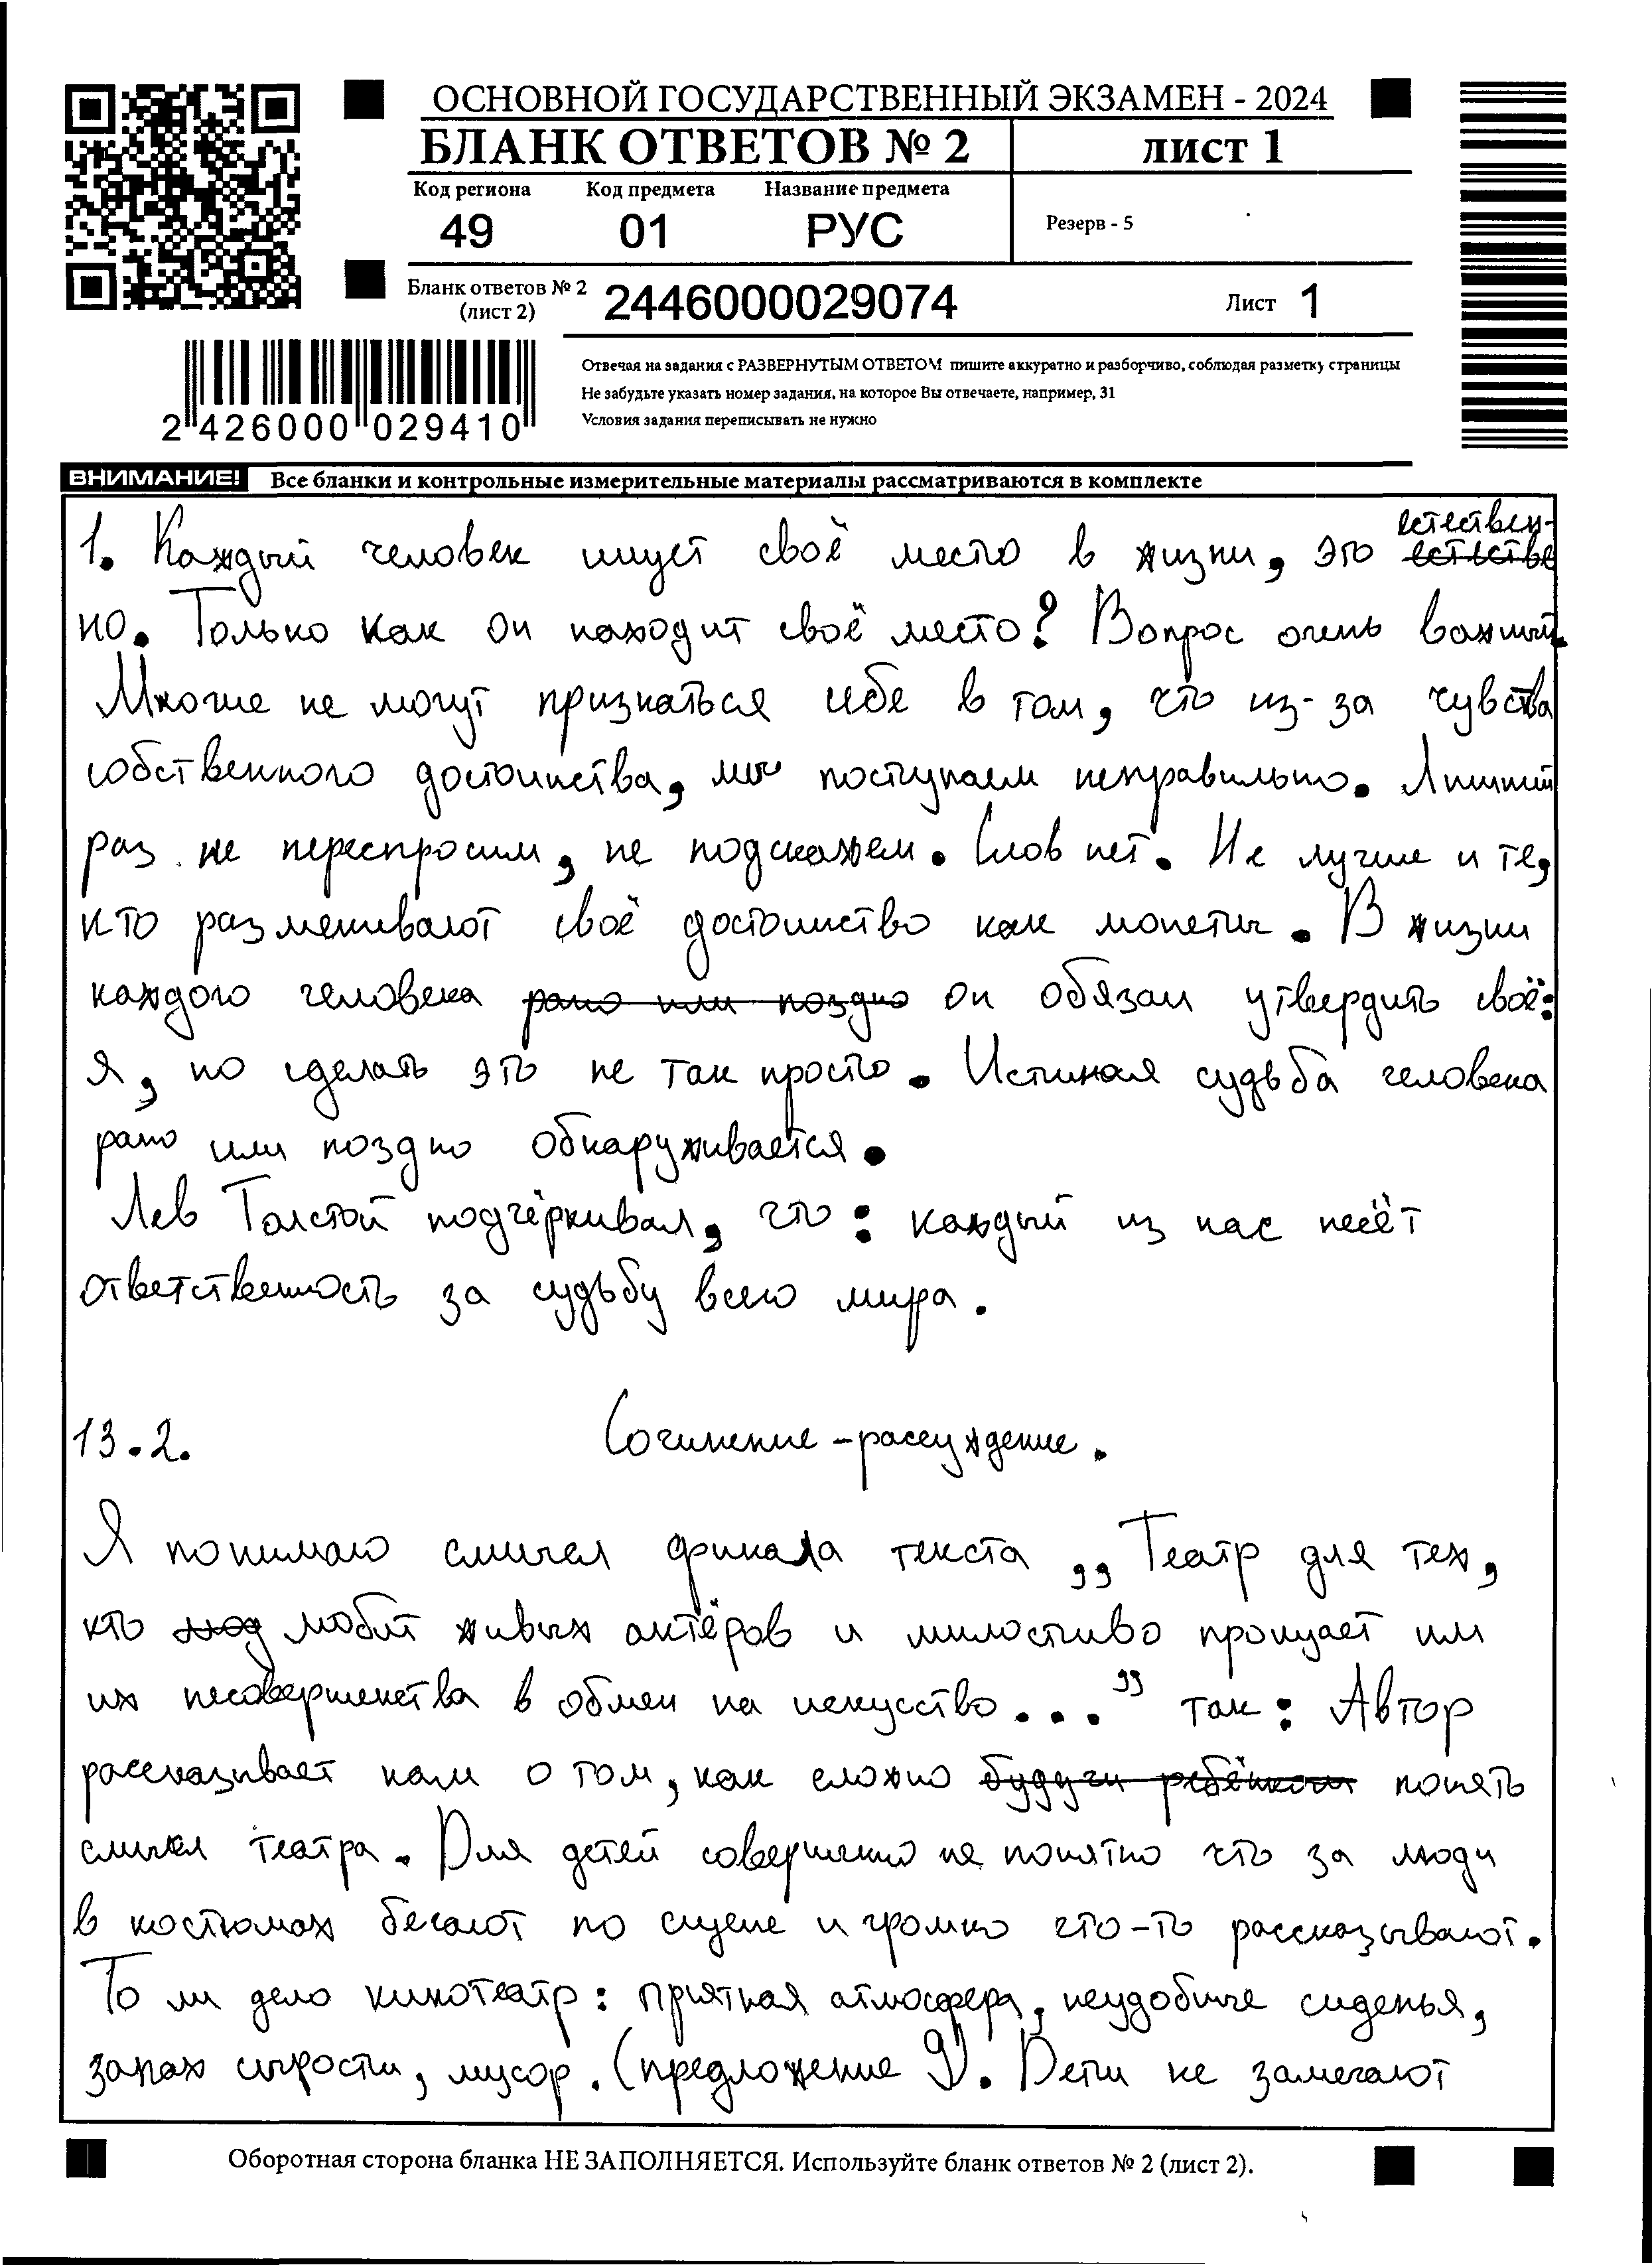 ОСНОВНОЙ ГОСУДАРСТВЕННЫЙ ЭКЗАМЕН - 2024
БЛАНК ОТВЕТОВ № 2
лист 1
Код региона Код предмета Название предмета
49 01 РУС
Резерв - 5
Бланк ответов № 2
(лист 2)
2446000029074
Лист 1
2 426000 029410
Отвечая на задания с РАЗВЕРНУТЫМ ОТВЕТОМ пишите аккуратно и разборчиво, соблюдая разметку страницы
Не забудьте указать номер задания, на которое Вы отвечаете, например, 31
Условия задания переписывать не нужно
ВНИМАНИЕ! Все бланки и контрольные измерительные материалы рассматриваются в комплекте
1. Каждый человек ищет своё место в жизни, это естествен-
но. Только как он находит своё место? Вопрос очень важный.
Многие не могут признаться себе в том, что из-за чувства
собственного достоинства, мы поступаем неправильно. Лишний
раз не переспросим, не подскажем. Слов нет. Не лучше и те,
кто разменивают своё достоинство как монеты. В жизни
каждого человека рано или поздно он обязан утвердить своё:
я, но сделать это не так просто. Истиная судьба человека
рано или поздно обнаруживается.
Лев Толстой подчёркивал, что: каждый из нас несёт
ответственность за судьбу всего мира.
13.2. Сочинение-рассуждение.
Я понимаю смысл финала текста „Театр для тех,
кто люд любит живых актёров и милостиво прощает им
их несовершенства в обмен на искусство...” так: Автор
рассказывает нам о том, как сложно будучи ребёнком понять
смысл театра. Для детей совершенно не понятно что за люди
в костюмах бегают по сцене и громко что-то рассказывают.
То ли дело кинотеатр: приятная атмосфера, неудобные сиденья,
запах сырости, мусор. (предложение 9). Дети не замечают
Оборотная сторона бланка НЕ ЗАПОЛНЯЕТСЯ. Используйте бланк ответов № 2 (лист 2).